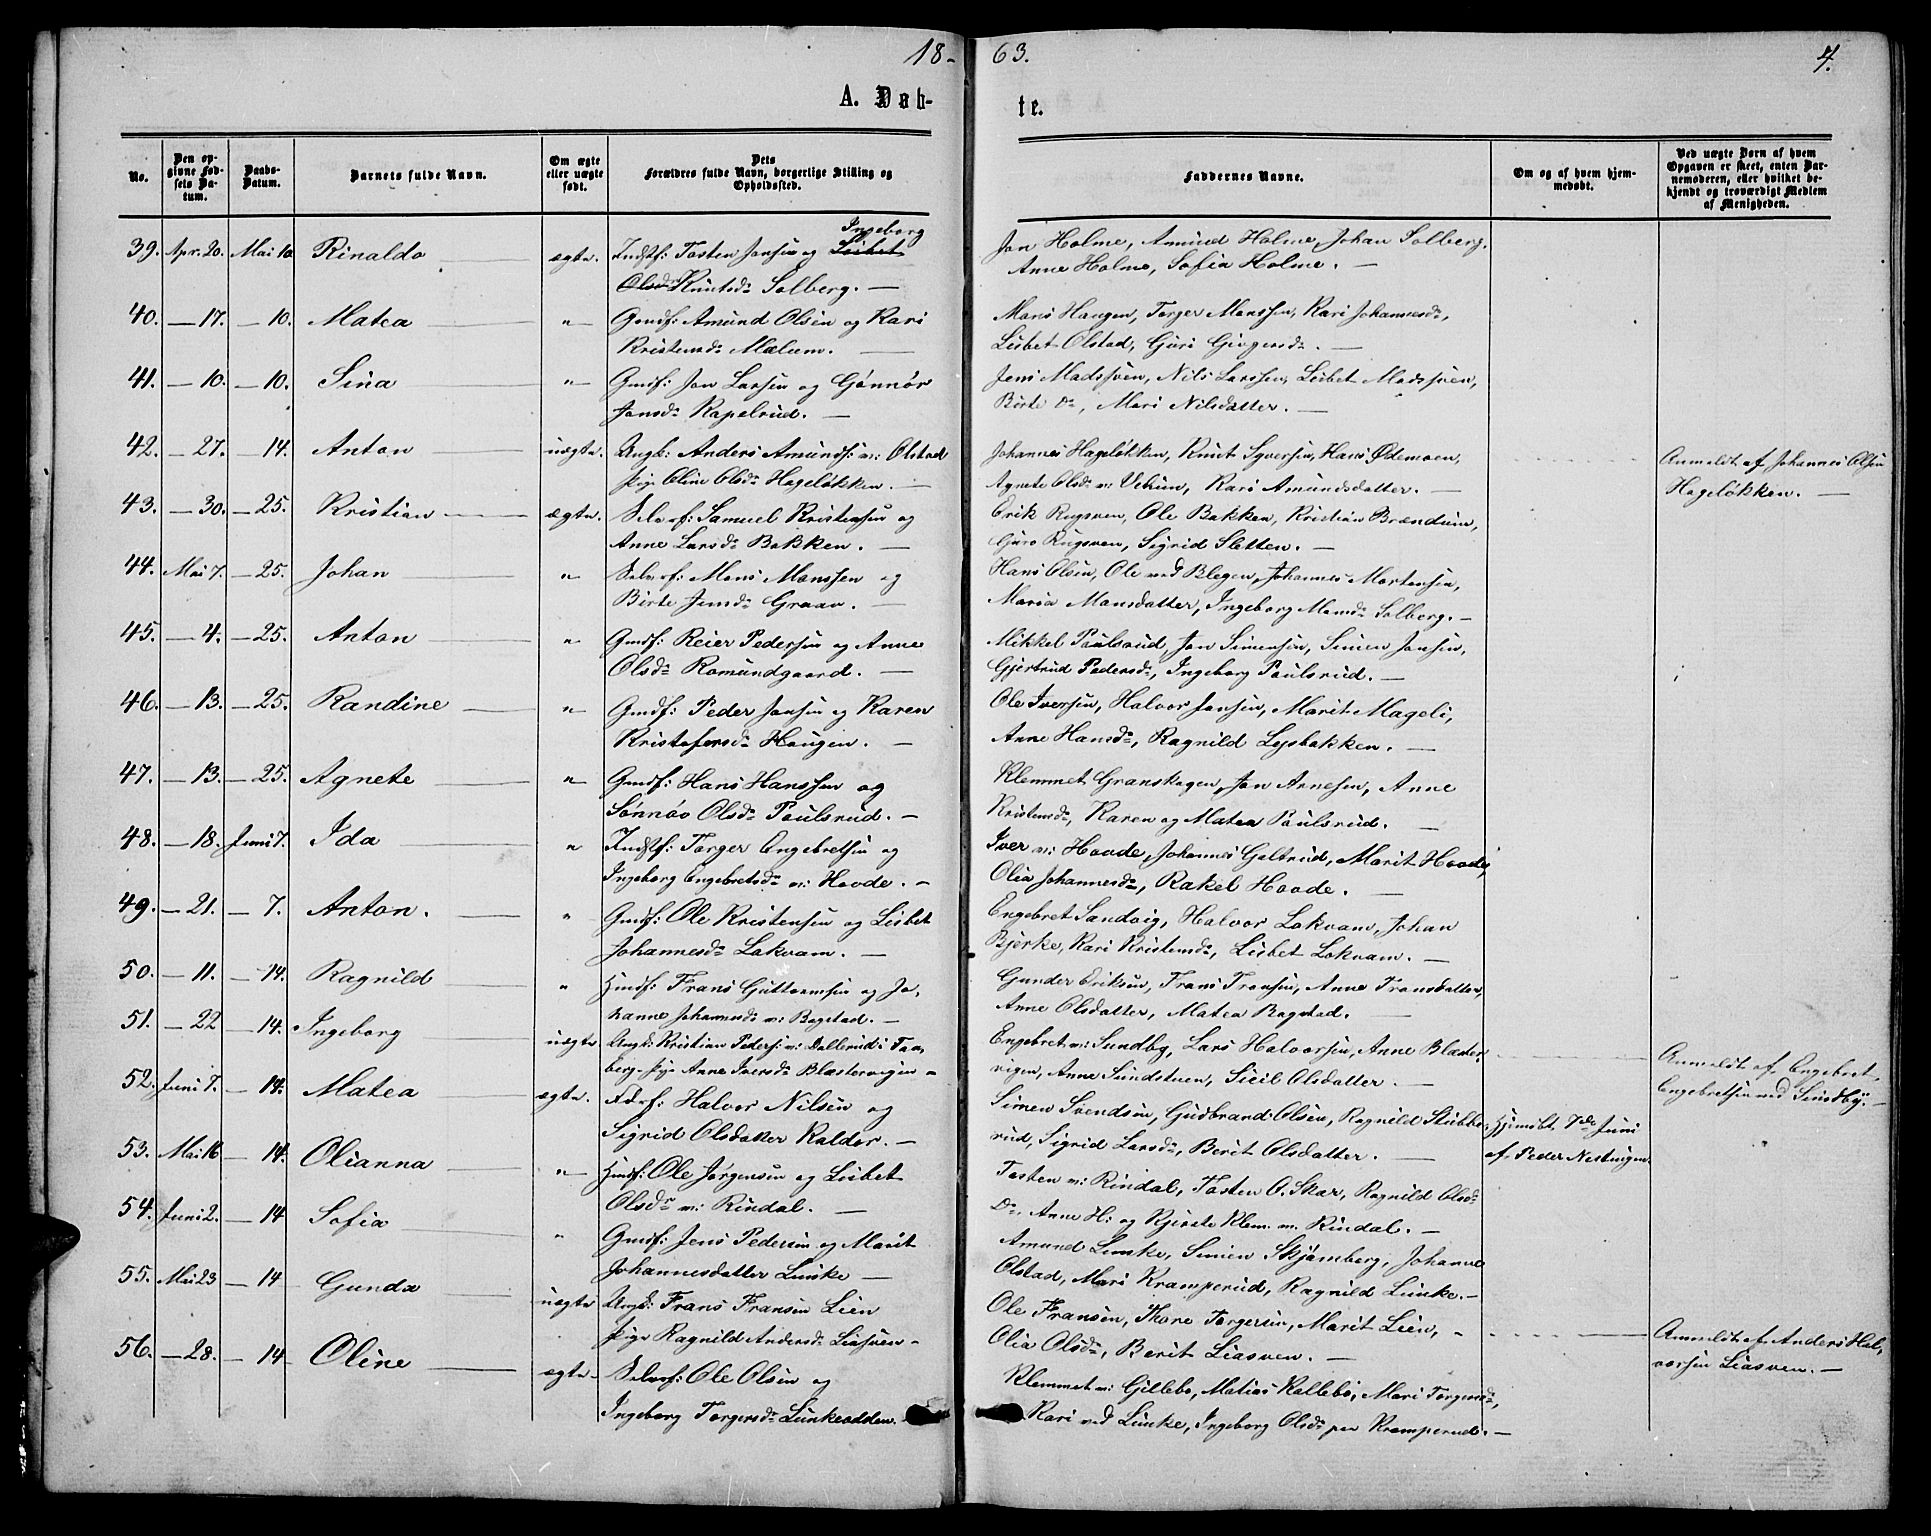 18-63.
4.
A. Døb-te.
No.
Den opgivne Fødsels Datum.
Daabs-Datum.
Barnets fulde Navn.
Om ægte eller uægte født.
Dets Forældres fulde Navn, borgerlige Stilling og Opholdssted.
Faddernes Navne.
Om og af hvem hjemmedøbt.
Ved uægte Børn af hvem Opgaven er skeet, enten Barnemoderen, eller hvilket bekjendt og troværdigt Medlem af Menigheden.
39. Apr. 20. Mai 10 Rinaldo ægte. Indstf: Tosten Jonsen og Lisbet Ingeborg
Olsdr Knutsdr Solberg. —
Jon Holme, Amund Holme, Johan Solberg,
Anne Holme, Sofia Holme. —
40. — 17. — 10. Matea " Gmdf: Amund Olsen og Kari
Kristensdr Mælum. —
Mons Haugen, Torger Monssen, Kari Johannesdr,
Lisbet Olstad, Guri
41. — 10. — 10. Sina " Gmdf: Jon Larsen og Gønnør
Jonsdr Kapelrud. —
Jens Madssven, Nils Larssen, Lisbet Madssven,
Birte Do, Mari Nilsdatter. —
42. — 27. — 14. Anton uægte. Ungk: Anders Amunds: v: Olstad
Pige Oline Olsdr Hageløkken. —
Johannes Hageløkken, Knut Syversen, Hans Ødemoen,
Agnete Olsdr v: Vebrun, Kari Amundsdatter. —
Anmeldt af Johannes Olsen
Hageløkken. —
43. — 30. — 25. Kristian ægte. Selvf: Samuel Kristensen og
Anne Larsdr Bakken. —
Erik Rugsven, Ole Bakken, Kristian Brændum,
Guro Rugsven, Sigrid Sletten. —
44. Mai 7. — 25. Johan " Selvf: Mons Monssen og
Birte Jensdr Graav. —
Hans Olsen, Ole ved Blegen, Johannes Mortensen,
Maria Monsdatter, Ingeborg Monsdr Solberg. —
45. — 4. — 25. Anton " Gmdf: Reier Pedersen og Anne
Olsdr Romundgaard. —
Mikkel Poulsrud, Jon Simensen, Simen Jonsen,
Gjertrud Pedersdr, Ingeborg Poulsrud. —
46. — 13. — 25. Randine " Gmdf: Peder Jonsen og Karen
Kristofersdr Haugen. —
Ole Iversen, Halvor Jonsen, Marit Mageli,
Anne Hansdr, Ragnild Lysbakken. —
47. — 13. — 25. Agnete " Gmdf: Hans Hanssen og
Sønnøv Olsdr Poulsrud. —
Klemmet Granskogen, Jon Arnesen, Anne
Kristensdr, Karen og Matea Poulsrud. —
48. — 18. Juni 7. Ida " Indstf: Torger Engebretsen og
Ingeborg Engebretsdr v: Hovde. —
Iver v: Hovde, Johannes Geltrud, Marit Hovde,
Olia Johannesdr, Rakel Hovde. —
49. — 21. — 7. Anton. " Gmdf: Ole Kristensen og Lisbet
Johannesdr Lokvam. —
Engebret Sandvig, Halvor Lokvam, Johan
Bjerke, Kari Kristensdr, Lisbet Lokvam. —
50. — 11. — 14. Ragnild " Hmdf: Frans Guttormsen og Jo-
hanne Johannesdr v: Bagstad. —
Gunder Eriksen, Frans Fransen, Anne Fransdatter,
Anne Olsdatter, Matea Bagstad. —
51. — 22 — 14. Ingeborg uægte Ungk: Kristian Peders: v: Dallerud i Faa-
berg. Pige Anne Iversdr Blæstervigen —
Engebret v: Sundby, Lars Halvorsen, Anne Blæster-
vigen, Anne Sundstuen, Sicil Olsdatter. —
Anmeldt af Engebret
Engebretsen ved Sundby. —
52. Juni 7. — 14. Matea ægte. Halvor Nilsen og
Sigrid Olsdatter Kaldor. —
Simen Svendsen, Gudbrand Olsen, Ragnild Stubbe-
rud, Sigrid Larsdr, Berit Olsdatter. —
Hjemdbt. 7de Juni
af Peder Nestingen.
53. Mai 16 — 14. Olianna " Hmdf: Ole Jørgensen og Lisbet
Olsdr v: Rindal. —
Tosten v: Rindal, Tosten O. Skar, Ragnild Olsdr
Do, Anne H: og Kjerste Klem. v. Rindal. —
54. Juni 2. — 14 Sofia " Gmdf: Jens Pedersen og Marit
Johannesdatter Lunke —
Amund Lunke, Simen Skjømberg, Johanne
Olstad, Mari Kramperud, Ragnild Lunke. —
55. Mai 23 — 14 Gunda uægte Ungk: Frans Fransen Lien
Pige Ragnild Andersdr Liasven —
Ole Fransen, Thore Torgersen, Marit Lien,
Olia Olsdr, Berit Liasven. —
Anmeldt af Anders Hal-
vorsen Liasven. —
56. — 28. — 14 Oline ægte Selvf: Ole Olsen og
Ingeborg Torgersdr Lunkeodden.
Klemmet v: Gillebo, Matias Kallebo, Mari Torgersdr,
Kari ved Lunke, Ingeborg Olsdr paa Kramperud. —